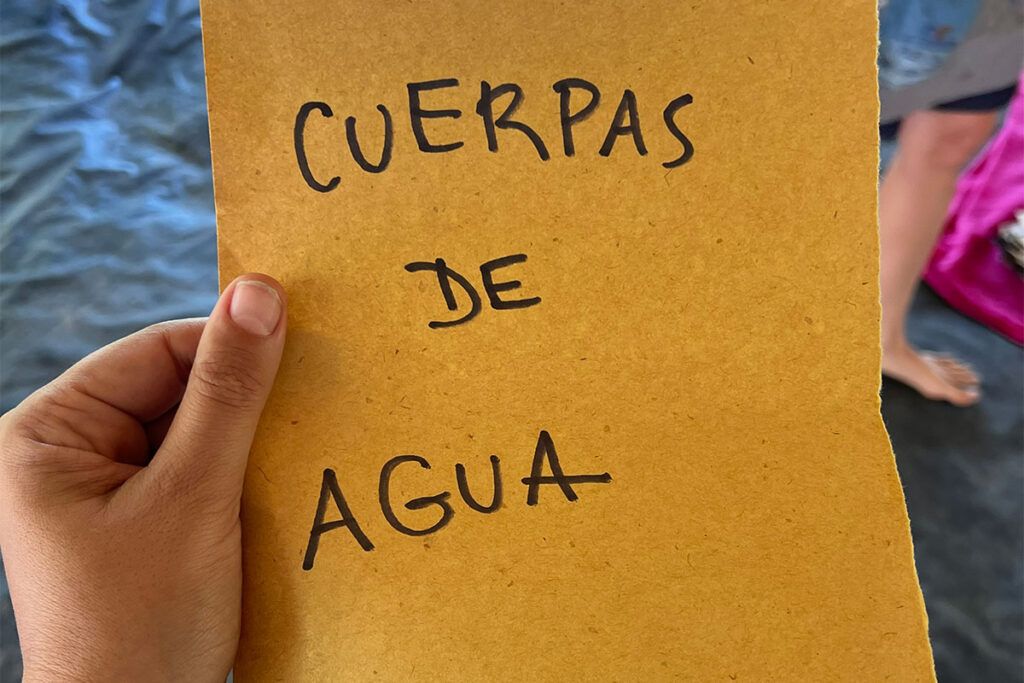 CUERPAS
DE
AGUA